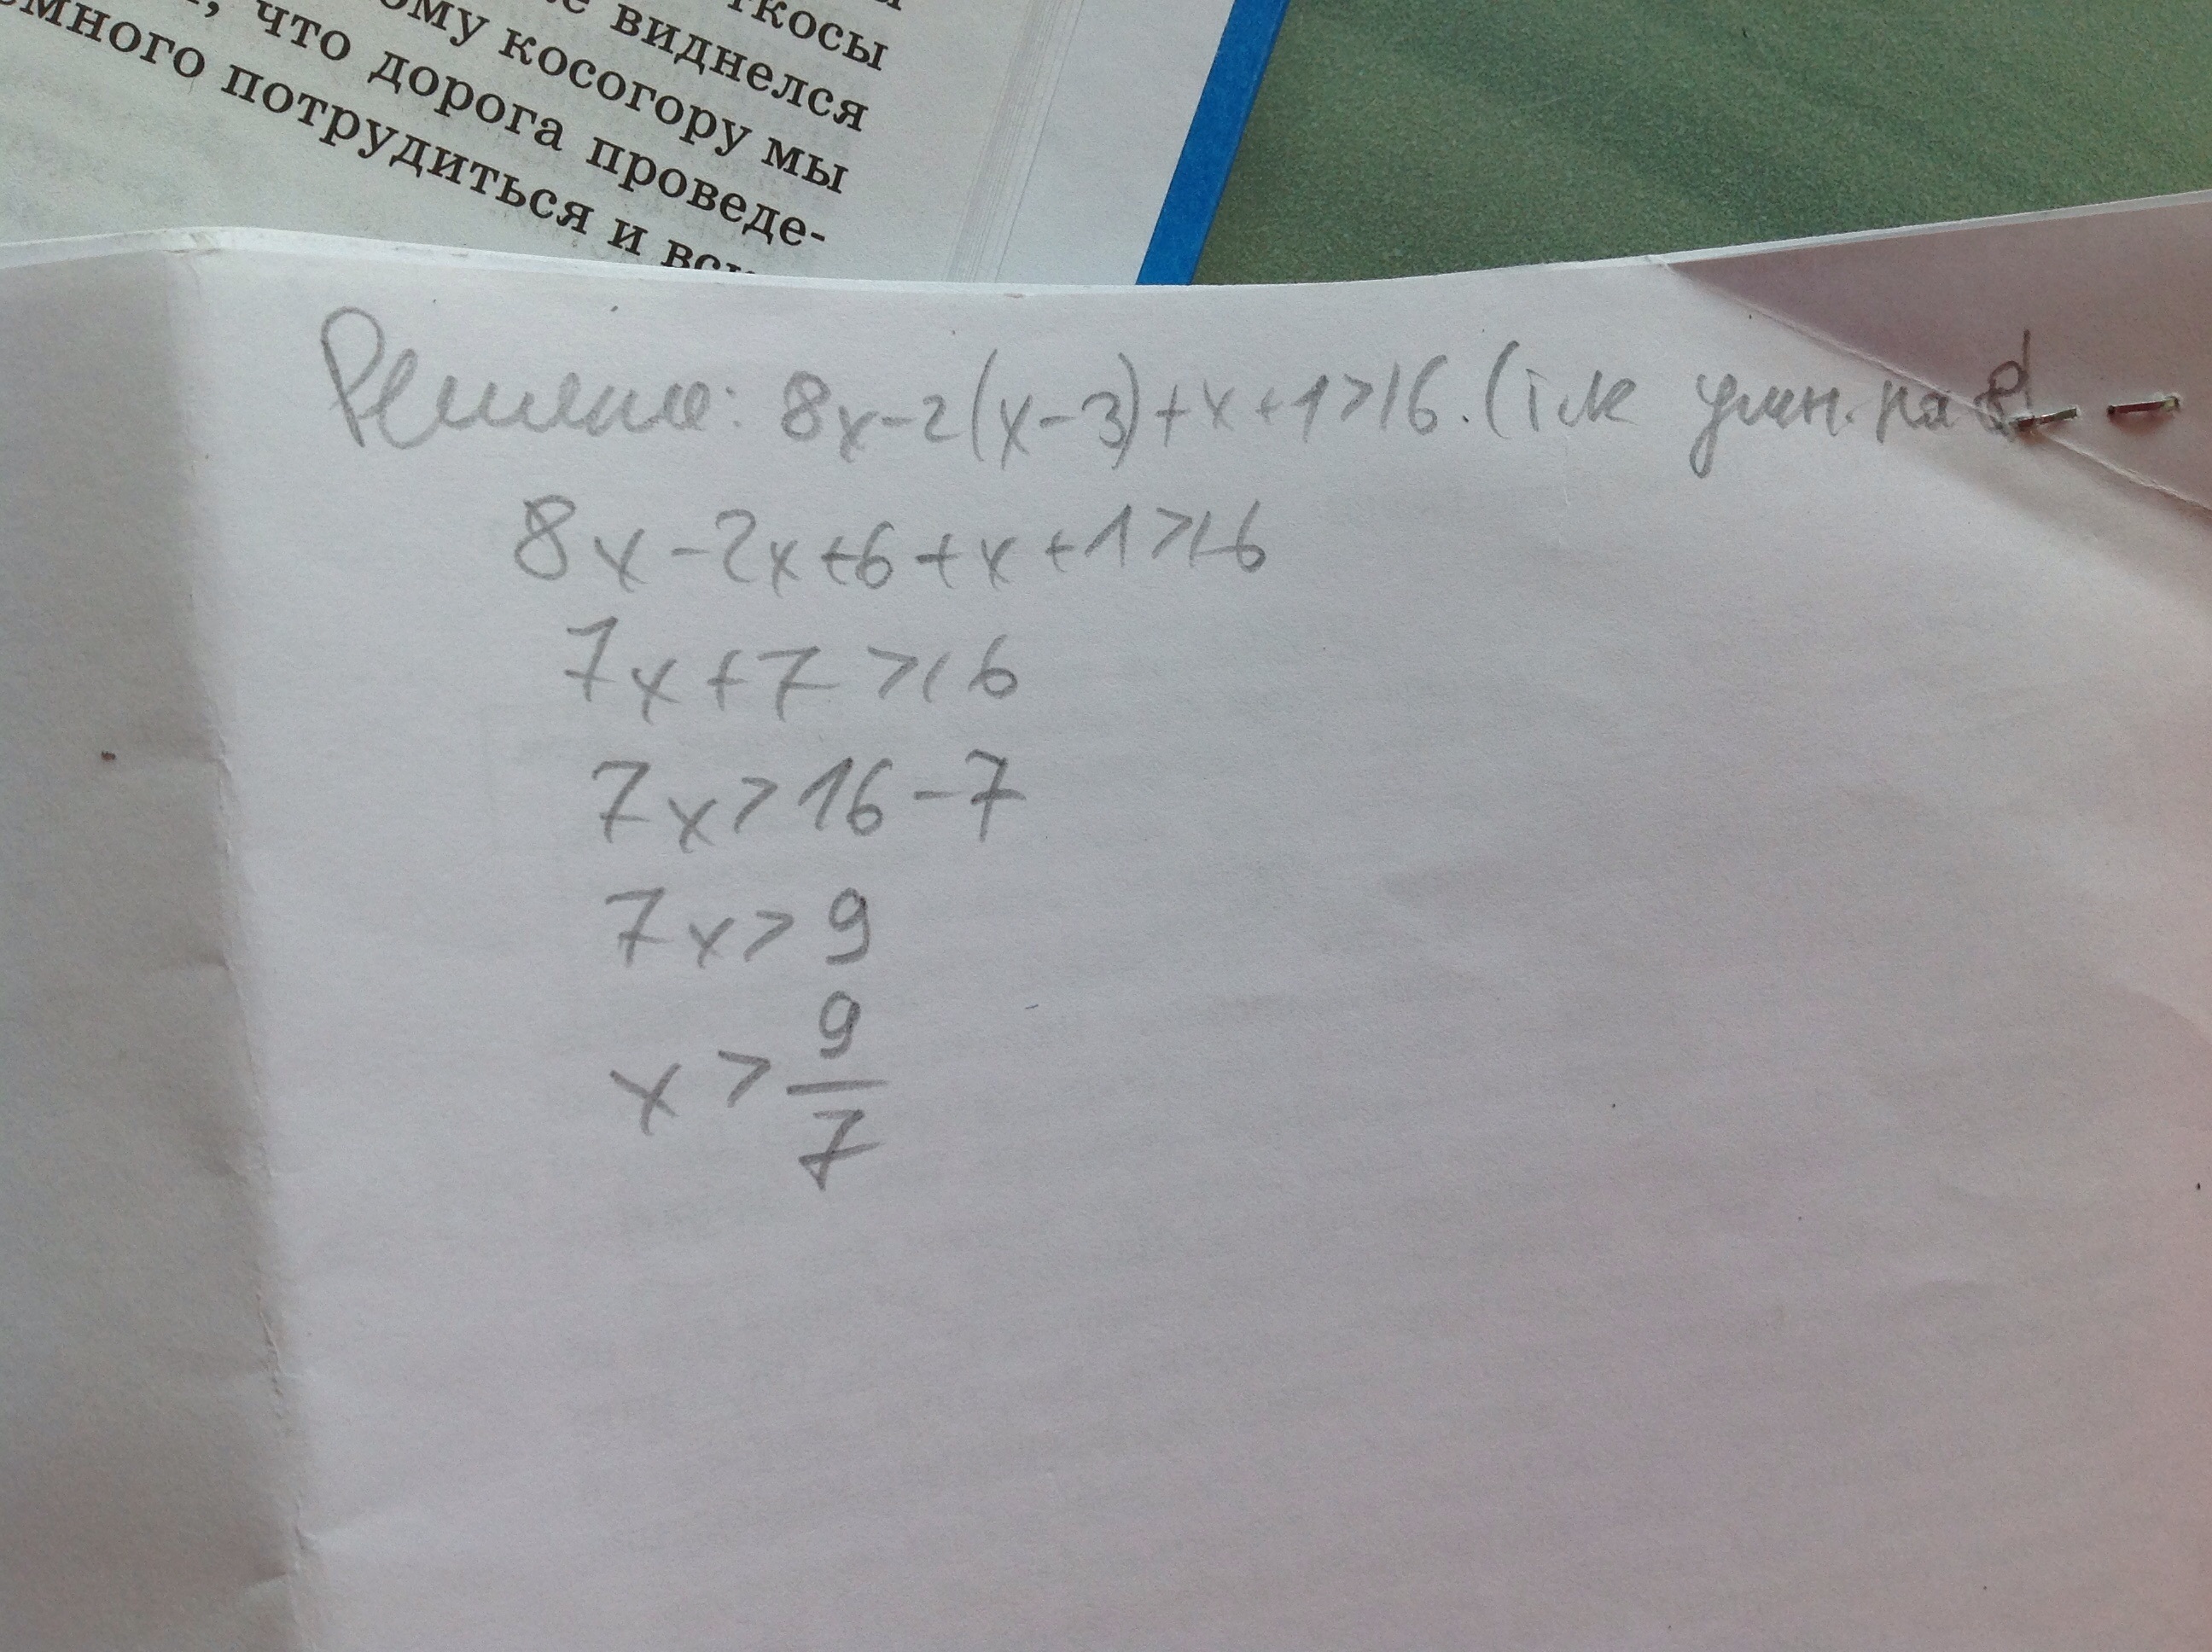 ткосы
е виднелся
ому косогору мы
, что дорога проведе-
емного потрудиться и вск
Решение: 8x-2(x-3)+x+1>16. (т.к умн. на 8)
8x-2x+6+x+1>16
7x+7>16
7x>16-7
7x>9
x>9/7